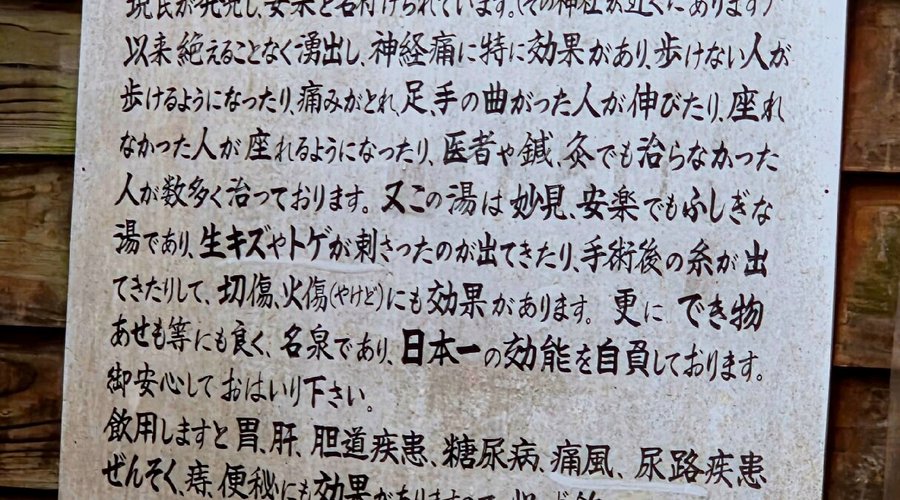 が発見し、安楽と名付けられています。(その神社が近くにあります)
以来絶えることなく湧出し、神経痛に特に効果があり、歩けない人が
歩けるようになったり、痛みがとれ、足、手の曲がった人が伸びたり、座れ
なかった人が座れるようになったり、医者や鍼、灸でも治らなかった
人が数多く治っております。又この湯は妙見、安楽でもふしぎな
湯であり、生キズやトゲが刺さったのが出てきたり、手術後の糸が出
てきたりして、切傷、火傷(やけど)にも効果があります。更に でき物
あせも等にも良く、名泉であり、日本一の効能を自負しております。
御安心しておはいり下さい。
飲用しますと胃、肝、胆道疾患、糖尿病、痛風、尿路疾患
ぜんそく、痔、便秘にも効果がありますので